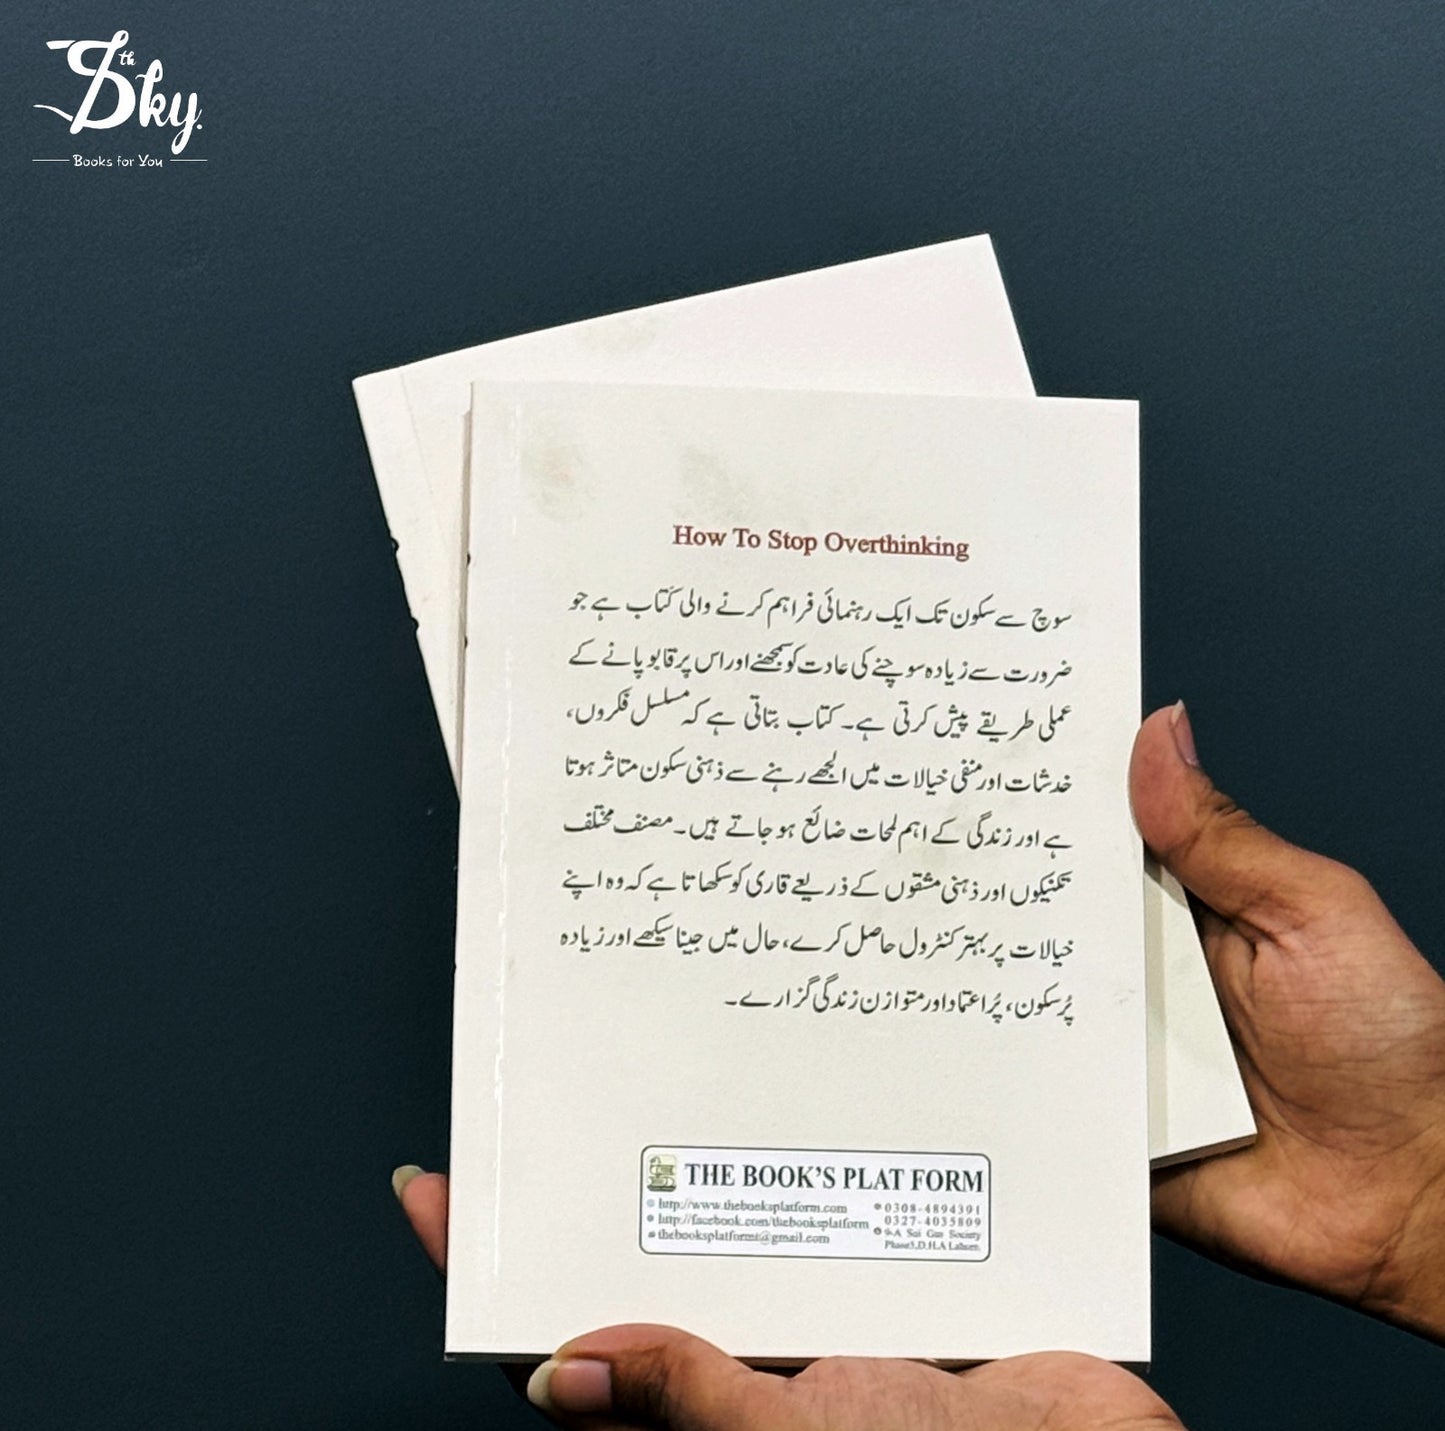 th
Sky.
Books for You
How To Stop Overthinking
سوچ سے سکون تک ایک رہنمائی فراہم کرنے والی کتاب ہے جو
ضرورت سے زیادہ سوچنے کی عادت کو سمجھنے اور اس پر قابو پانے کے
عملی طریقے پیش کرتی ہے۔ کتاب بتاتی ہے کہ مسلسل فکروں،
خدشات اور منفی خیالات میں الجھے رہنے سے ذہنی سکون متاثر ہوتا
ہے اور زندگی کے اہم لمحات ضائع ہو جاتے ہیں۔ مصنف مختلف
تکنیکوں اور ذہنی مشقوں کے ذریعے قاری کو سکھاتا ہے کہ وہ اپنے
خیالات پر بہتر کنٹرول حاصل کرے، حال میں جینا سیکھے اور زیادہ
پُرسکون، پُراعتماد اور متوازن زندگی گزارے۔
THE BOOK'S PLAT FORM
http://www.thebooksplatform.com
http://facebook.com/thebooksplatform
thebooksplatform1@gmail.com
0308-4894391
0327-4035809
9-A Sui Gas Society
Phase5,D.H.A Lahore.